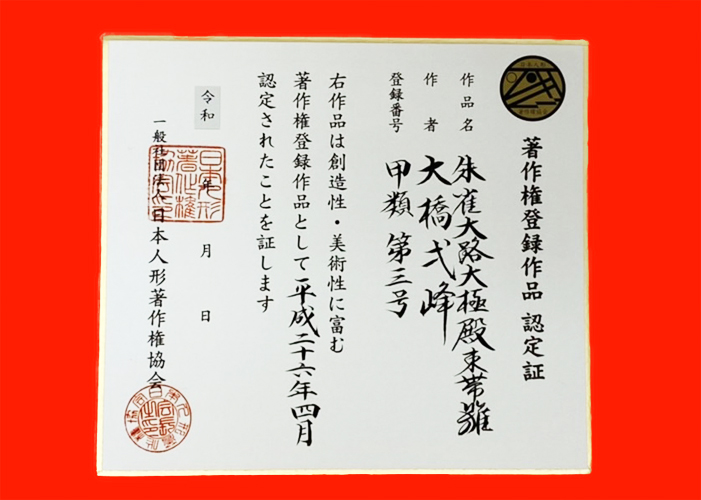 著作権登録作品 認定証
作品名 朱雀大路大極殿束帯雛
作者 大橋弌峰
登録番号 甲類 第三号
右作品は創造性・美術性に富む
著作権登録作品として平成二十六年四月
認定されたことを証します
令和 年 月 日
一般社団法人日本人形著作権協会